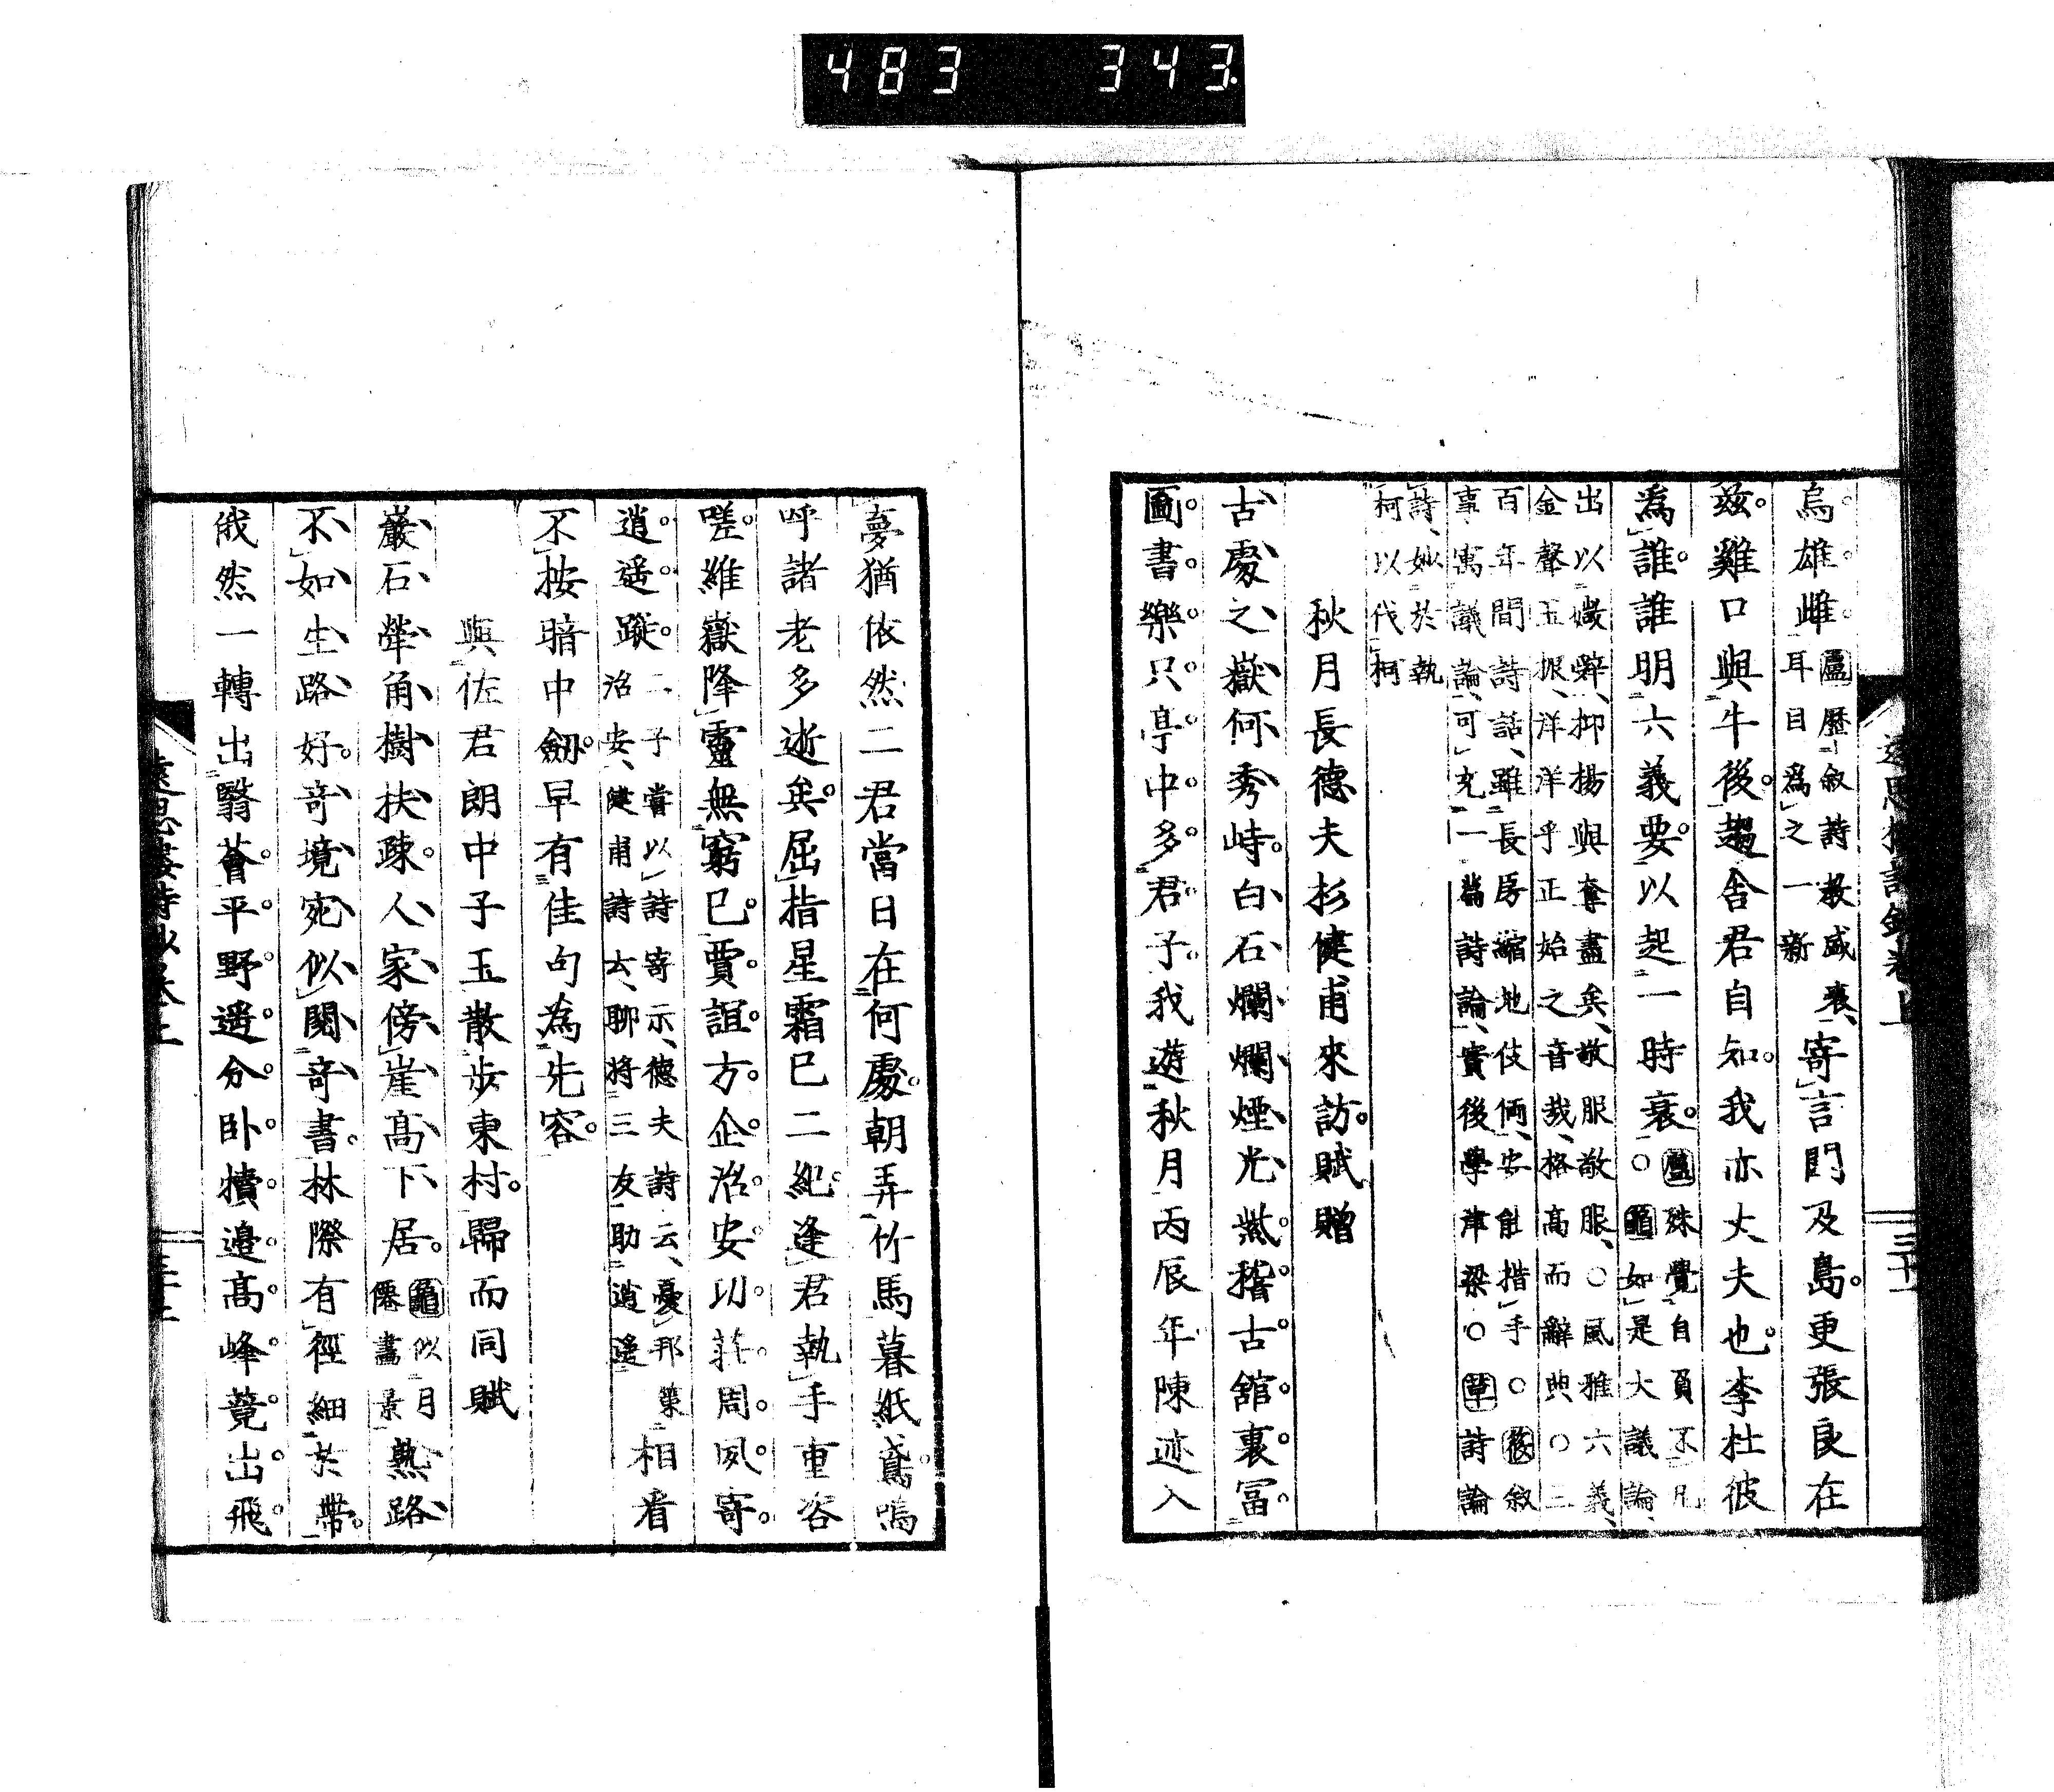 483 343
烏雄雌 盧歷叙詩教盛衰、耳目爲之一新 寄言門及島更張良在
茲雞口與牛後趨舍君自知我亦大夫也李杜彼
爲誰誰明六義要以起一時衰 盧殊覺自負不凡○龜如是大議論、
出以嫩辭、抑揚與奪盡矣、敬服敬服、○風雅六義、
金聲玉振、洋洋乎正始之音哉、格高而辭典○三
百年間詩話、雖長房縮地伎倆、安能措手○後叙
事寓議論、可充一篇詩論、實後學津梁○草詩論
詩、妙於執
柯以伐柯
秋月長德夫杉健甫來訪賦贈
古處之嶽何秀峙白石爛爛煙光紫稽古舘裏冨
圖書樂只亭中多君子我遊秋月丙辰年陳迹入
夢猶依然二君當日在何處朝弄竹馬暮紙鳶嗚
呼諸老多逝矣屈指星霜已二紀逢君執手重咨
嗟維嶽降靈無窮已賈誼方企治安功莊周夙寄
逍遥蹤 二子嘗以詩寄示、德夫詩云、憂邦策治安、健甫詩云、聊將三友助逍遥 相看
不按暗中劒早有佳句為先容
與佐君朗中子玉散步東村歸而同賦
巖石犖角樹扶疎人家傍崖高下居 龜似月僊畵景 熟路
不如生路好奇境宛似閱奇書林際有徑細於帶
俄然一轉出翳薈平野遥分卧犢邉高峰競出飛